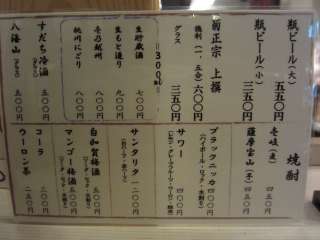 瓶ビール(大) 五五〇円
瓶ビール(小) 三五〇円
菊正宗 上撰
徳利(一、五合) 六〇〇円
グラス 三五〇円
300ml
生貯蔵酒 七〇〇円
生もと造り 八〇〇円
壱乃越州
桃川にごり 八〇〇円
すだち冷酒 五〇〇円
八海山 五〇〇円
焼酎
壱岐(麦) 四五〇円
薩摩宝山(芋) 四五〇円
ブラックニッカ 四〇〇円
(ハイボール・ロック・水割り)
サワー 四〇〇円
サンタリタ 一二〇〇円
白加賀梅酒 五〇〇円
マンゴー梅酒 五〇〇円
コーラ 二五〇円
ウーロン茶 二五〇円